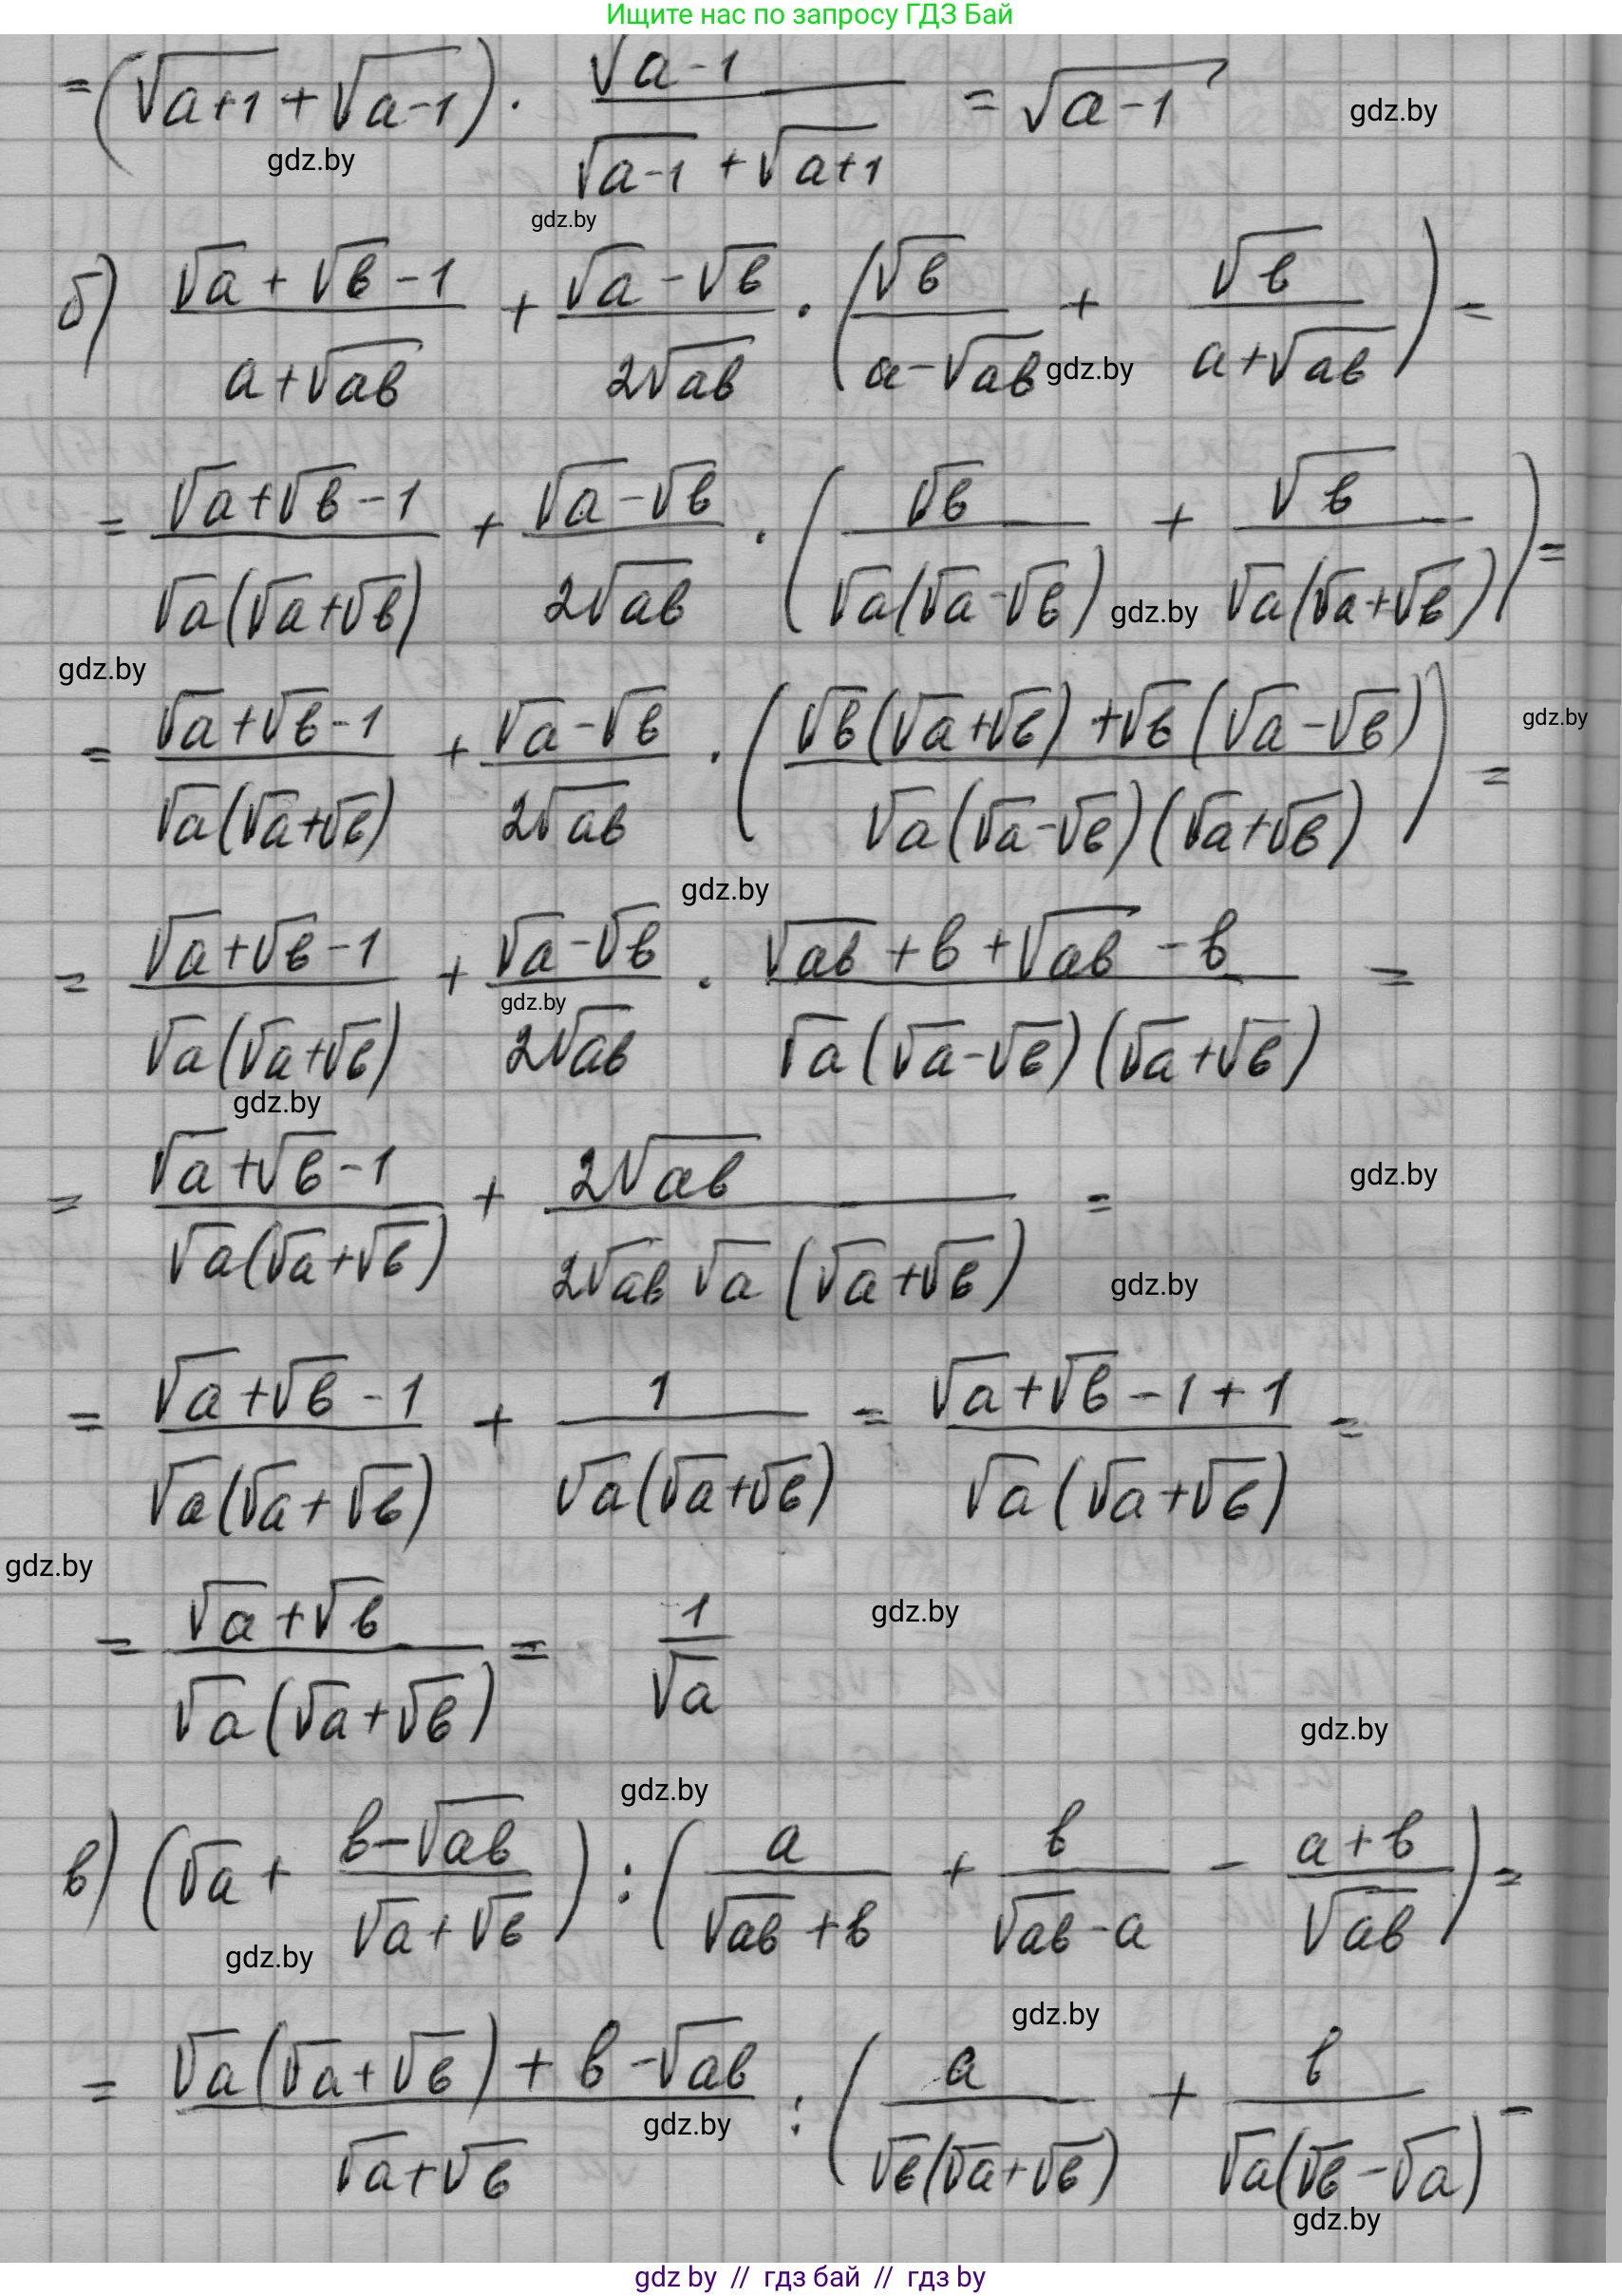 Ищите нас по запросу ГДЗ Бай
= (√(a+1) + √(a-1)) · √a-1 / (√(a-1) + √(a+1)) = √(a-1)
gdz.by
gdz.by
gdz.by
б) (√a + √b - 1)/(a + √(ab)) + (√a - √b)/(2√(ab)) · (√b/(a - √(ab)) + √b/(a + √(ab))) =
gdz.by
= (√a + √b - 1)/(√a(√a + √b)) + (√a - √b)/(2√(ab)) · (√b/(√a(√a - √b)) + √b/(√a(√a + √b))) =
gdz.by
gdz.by
= (√a + √b - 1)/(√a(√a + √b)) + (√a - √b)/(2√(ab)) · ((√b(√a + √b) + √b(√a - √b))/(√a(√a - √b)(√a + √b))) =
gdz.by
gdz.by
= (√a + √b - 1)/(√a(√a + √b)) + (√a - √b)/(2√(ab)) · (√(ab) + b + √(ab) - b)/(√a(√a - √b)(√a + √b)) =
gdz.by
gdz.by
= (√a + √b - 1)/(√a(√a + √b)) + 2√(ab)/(2√(ab) √a (√a + √b)) =
gdz.by
gdz.by
= (√a + √b - 1)/(√a(√a + √b)) + 1/(√a(√a + √b)) = (√a + √b - 1 + 1)/(√a(√a + √b)) =
gdz.by
= (√a + √b)/(√a(√a + √b)) = 1/√a
gdz.by
gdz.by
gdz.by
в) (√a + (b - √(ab))/(√a + √b)) : (a/(√(ab) + b) + b/(√(ab) - a) - (a + b)/√(ab)) =
gdz.by
gdz.by
= (√a(√a + √b) + b - √(ab))/(√a + √b) : (a/(√b(√a + √b)) + b/(√a(√b - √a)) -
gdz.by
gdz.by
gdz.by // гдз бай // гдз by